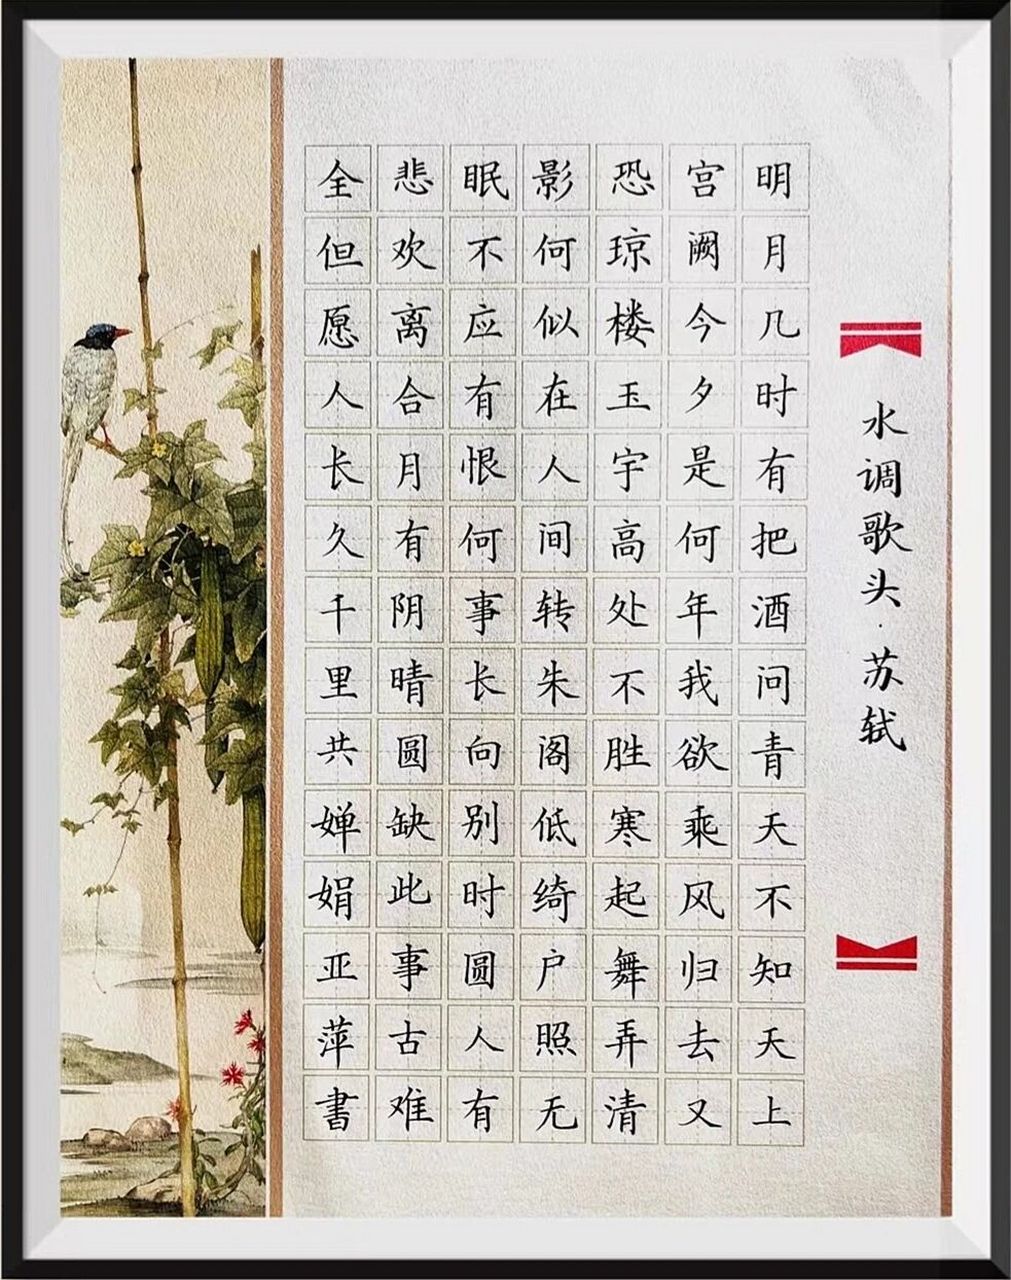 水调歌头·苏轼
明月几时有把酒问青天不知天上
宫阙今夕是何年我欲乘风归去又
恐琼楼玉宇高处不胜寒起舞弄清
影何似在人间转朱阁低绮户照无
眠不应有恨何事长向别时圆人有
悲欢离合月有阴晴圆缺此事古难
全但愿人长久千里共婵娟亚萍書